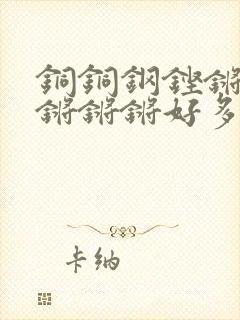 銅銅鋼鏗鏘
鏘鏘鏘好多
卡納